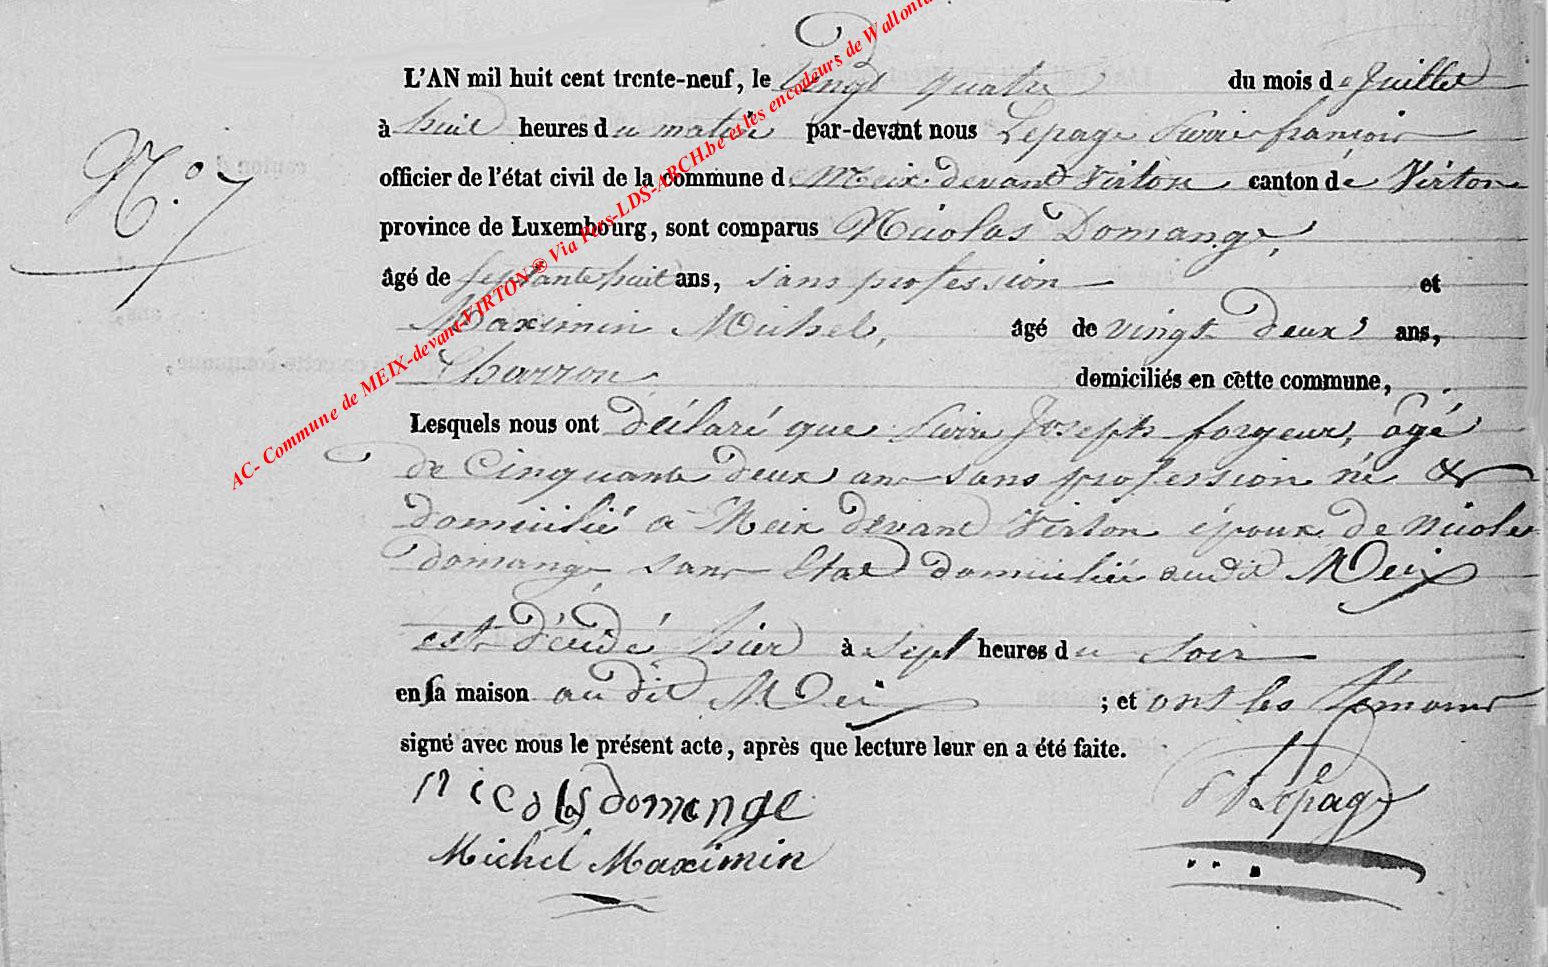 L'AN mil huit cent trente-neuf, le vingt quatre du mois de Juillet
à huit heures du matin par-devant nous Lepage Pierre françois
officier de l'état civil de la commune de Meix devant Virton canton de Virton
province de Luxembourg, sont comparus Nicolas Domange,
âgé de septante huit ans, sans profession et
Maximin Michel, âgé de vingt deux ans,
Charron domiciliés en cette commune,
Lesquels nous ont déclaré que Pierre Joseph forgeur, âgé
de Cinquante deux ans sans profession né &
domicilié à Meix devant Virton époux de Nicole
domange, sans Etat domiciliée audit Meix
est décédé hier à sept heures du soir
en sa maison audit Meix ; et ont les témoins
signé avec nous le présent acte, après que lecture leur en a été faite.
N.° 7
Nicolas domange
Michel Maximin
Lepage
AC- Commune de MEIX-devant-VIRTON ® Via Pers-LDS-ARCH.be et les encodeurs de Wallonie